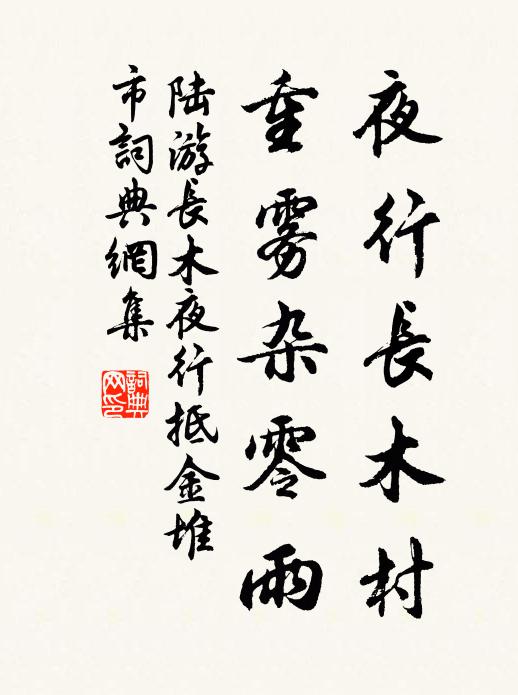 夜行長木村
重雾杂零雨
陆游長木夜行抵金堆
市詞典網集
詞典
网印